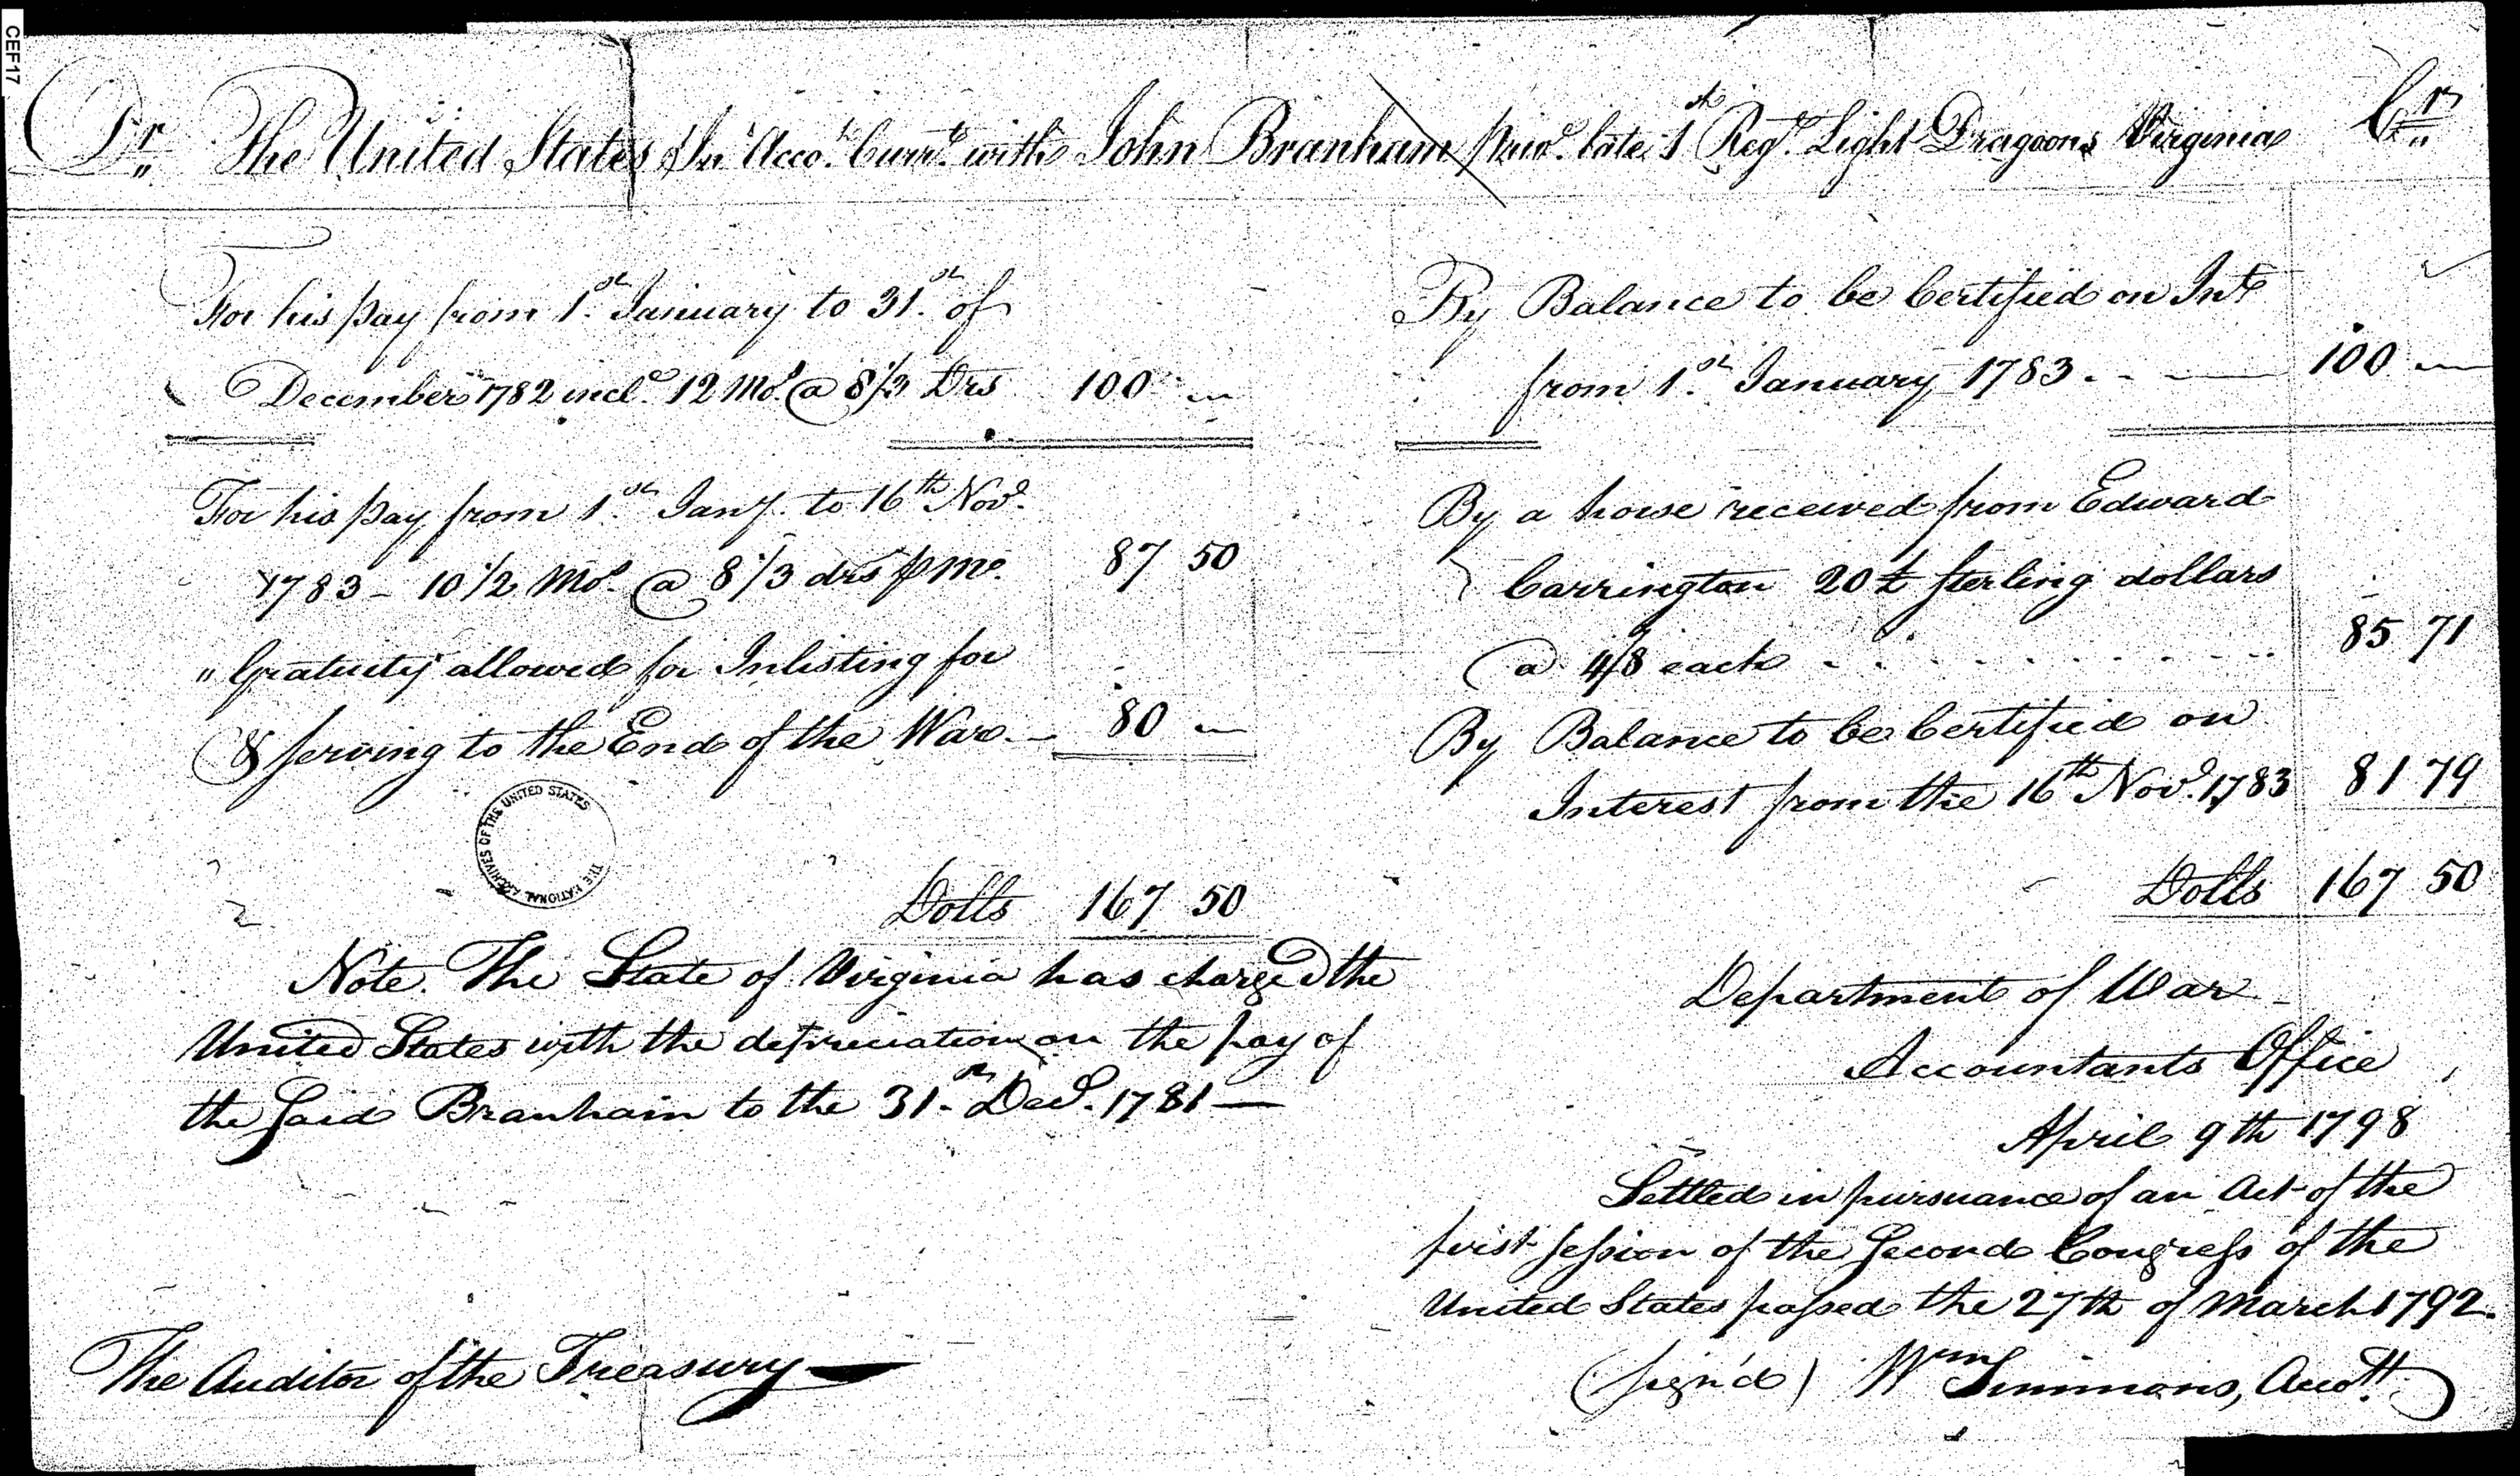 CEF17
Dr. The United States In Acco.t Curr.t with John Branham priv.e late 1st Reg.t Light Dragoons Virginia Cr.
For his pay from 1.st January to 31.st of
December 1782 incl.e 12 Mo.s @ 8 1/3 Drs 100 —
For his pay from 1.st Jan.y to 16th Nov.r
1783 - 10 1/2 Mo.s @ 8 1/3 drs p Mo. 87 50
" Gratuity allowed for Inlisting for
& serving to the End of the War — 80 —
THE NATIONAL ARCHIVES OF THE UNITED STATES
Dolls 167 50
Note. The State of Virginia has charged the
United States with the depreciation on the pay of
the said Branham to the 31.st Dec.r 1781 —
The Auditor of the Treasury
By Balance to be Certified on Int.t
from 1.st January 1783 . - - — 100 —
By a horse received from Edward
Carrington 20 £ sterling dollars
@ 4/8 each - - - - - - - 85 71
By Balance to be Certified on
Interest from the 16th Nov.r 1783 81 79
Dolls 167 50
Department of War
Accountants Office
April 9th 1798
Settled in pursuance of an Act of the
first session of the Second Congress of the
United States passed the 27th of March 1792.
(sign'd) Wm Simmons, Acco.tt